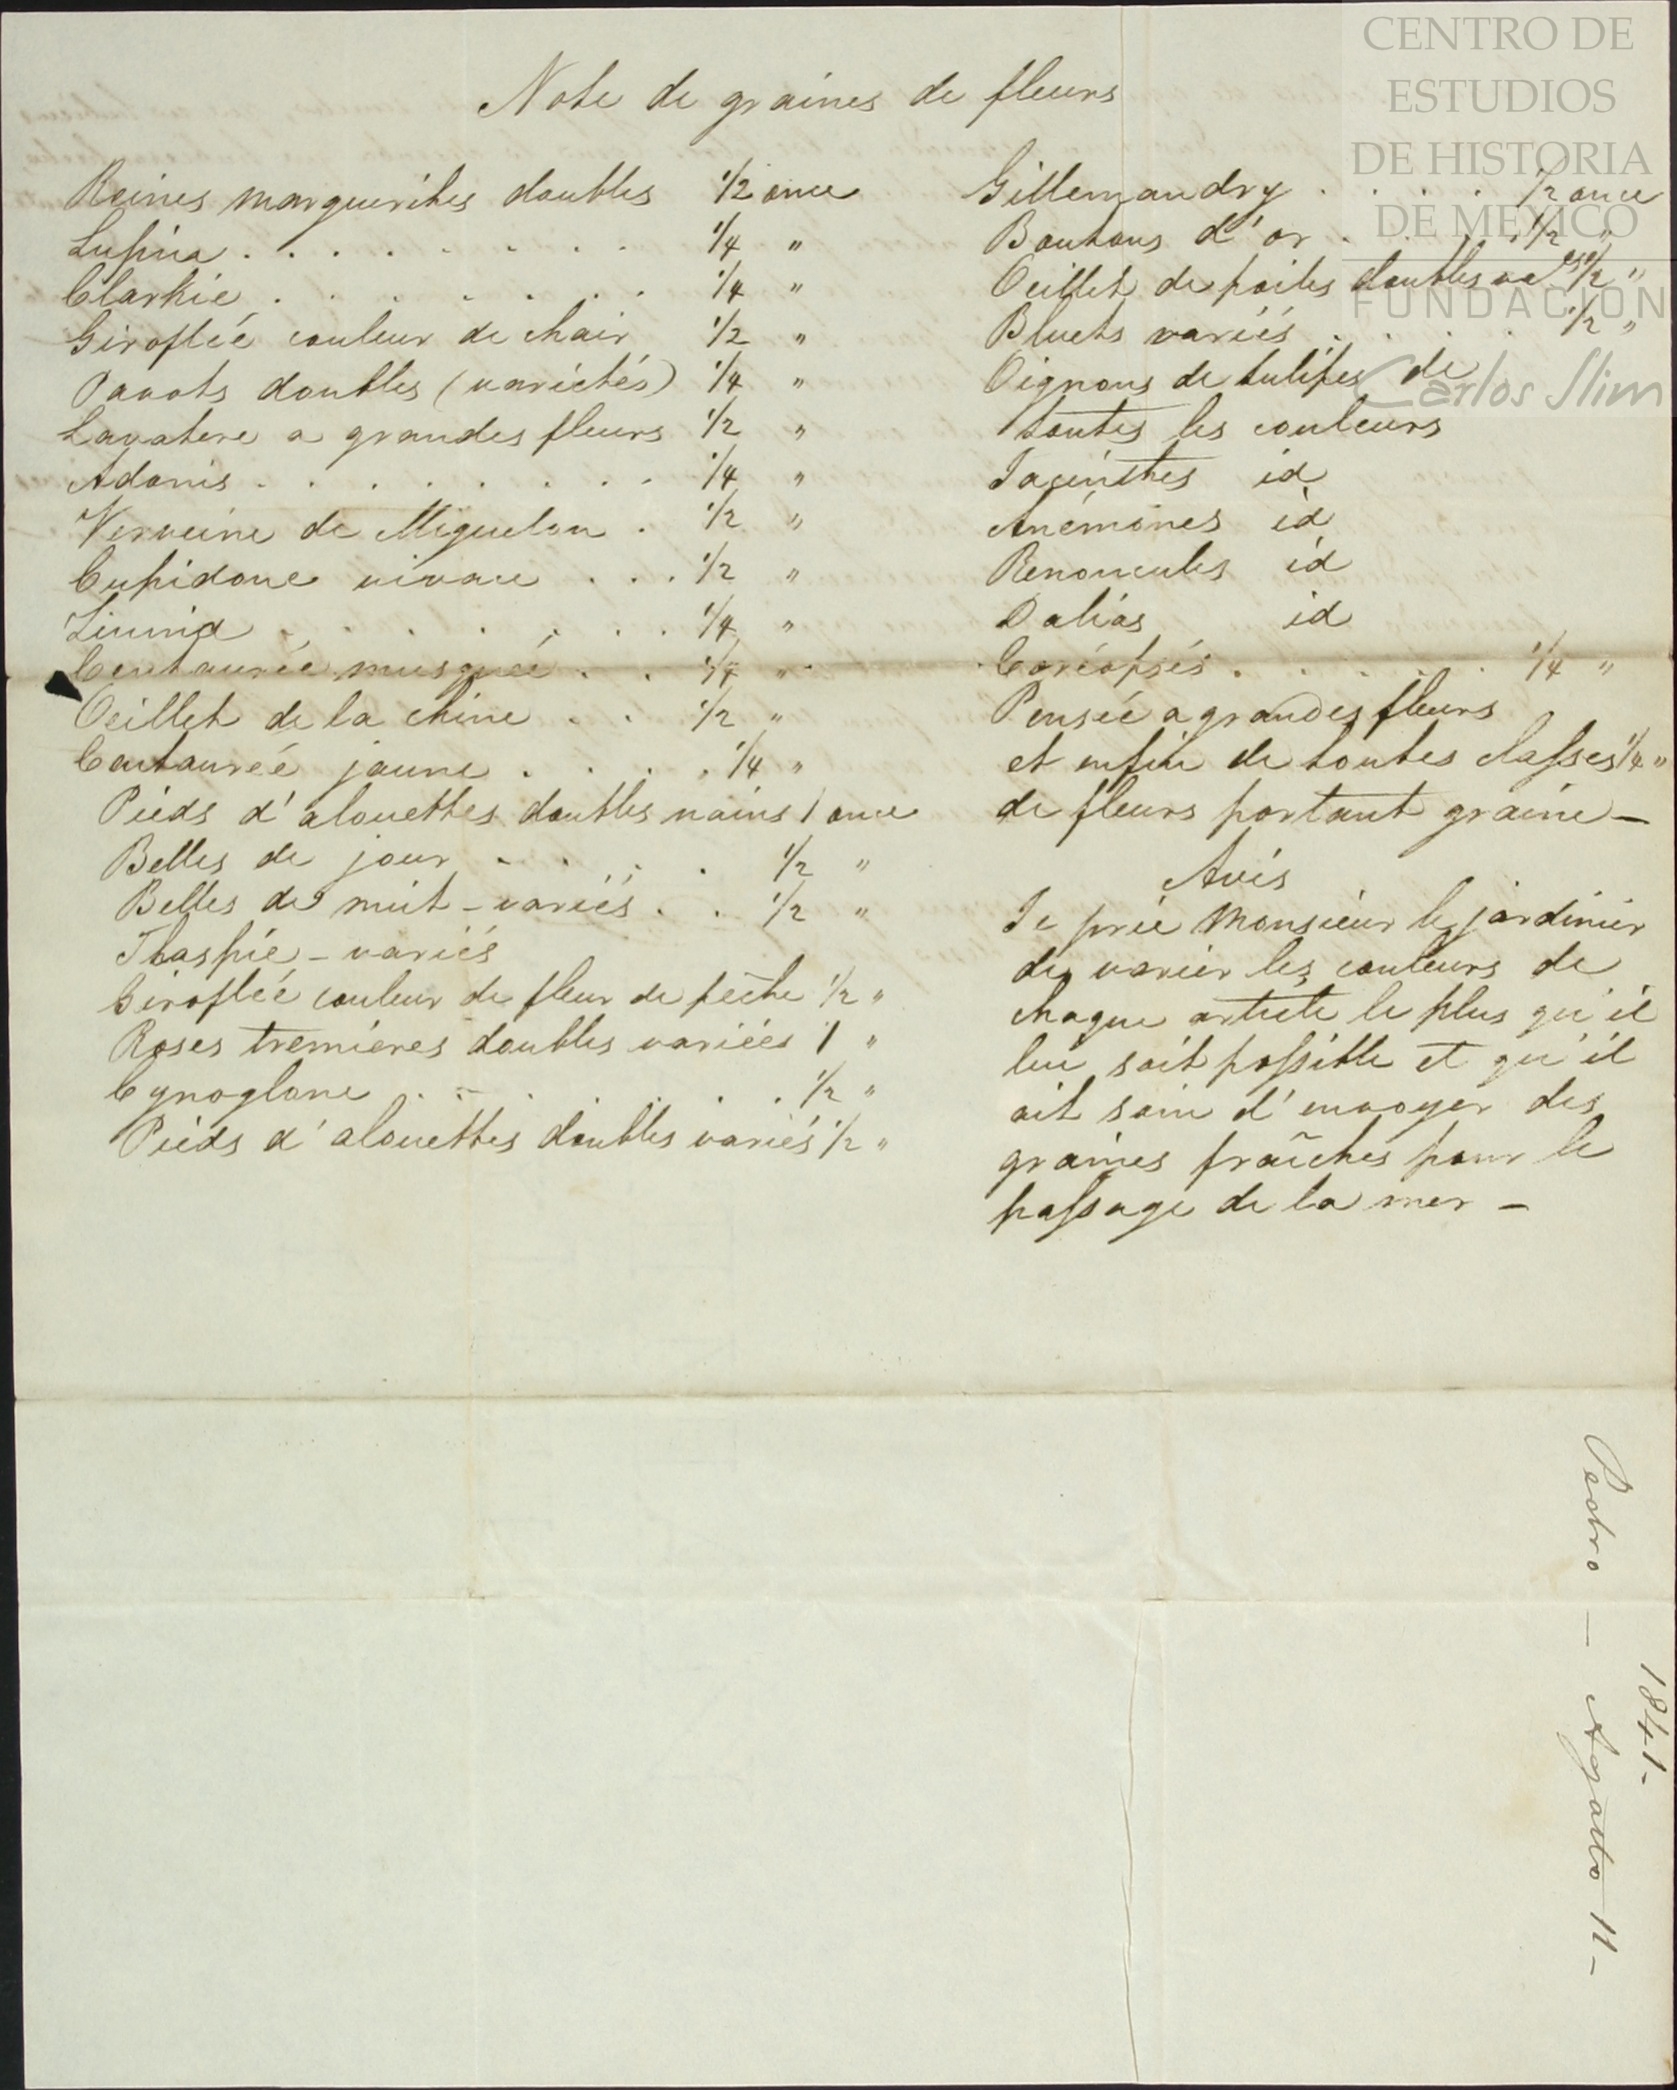 Note de graines de fleurs
Reines marguerites doubles 1/2 once
Lupina . . . . . . . . 1/4 "
Clarkie . . . . . . . . 1/4 "
Giroflée couleur de chair 1/2 "
Pavots doubles (variétés) 1/4 "
Lavatere a grandes fleurs 1/2 "
Adonis . . . . . . . . 1/4 "
Verveine de Miquelon . 1/2 "
Cupidone vivace . . . 1/2 "
1/4 "
Centaurée musquée . . 1/4 "
Oeillet de la chine . . 1/2 "
Centaureé jaune . . . . 1/4 "
Pieds d'alouettes doubles nains 1 once
Belles de jour . . . . . 1/2 "
Belles de nuit - variés . . 1/2 "
Thaspie - variés
Giroflée couleur de fleur de pêche 1/2 "
Roses tremieres doubles variées 1 "
Cynoglone . . . . . . . 1/2 "
Pieds d'alouettes doubles variés 1/2 "
Gillemandry . . . . . 1/2 once
Boutons d'or . . . . . 1/2 "
Oeillet de poites doubles va.es 1/2 "
Bluets variés . . . . . 1/2 "
Oignons de tulipes de
toutes les couleurs
Jacinthes id
Anémones id
Renoncules id
Dalias id
Coréopsés . . . . . . 1/4 "
Pensée a grandes fleurs
et enfin de toutes classes 1/4 "
de fleurs portant graine -
Avis
Je prie Monsieur le jardinier
de varier les couleurs de
chaque article le plus qu'il
lui soit possible et qu'il
ait soin d'envoyer des
graines fraîches pour le
passage de la mer -
1841-
Pedro - Agosto 11 -
CENTRO DE
ESTUDIOS
DE HISTORIA
DE MÉXICO
FUNDACIÓN
Carlos Slim